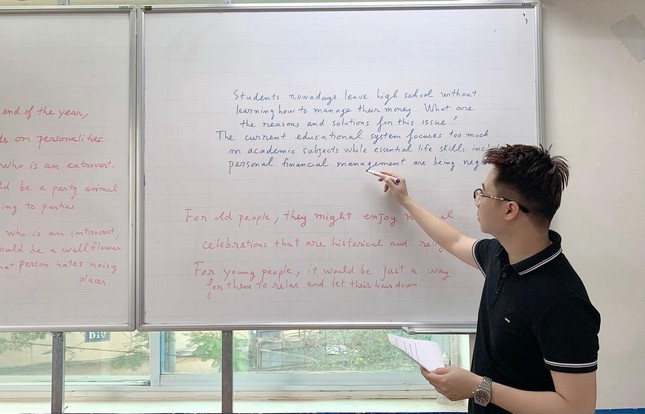 end of the year,
on personalities.
who is an extrovert.
be a party animal
ing to parties.
who is an introvert,
ould be a wallflower
person hates noisy
places
Students nowadays leave high school without
learning how to manage their money. What are
the reasons and solutions for this issue?
The current educational system focuses too much
on academic subjects while essential life skills
personal financial management are being
For old people, they might enjoy
celebrations that are historical and
For young people, it would be just a way
for them to relax and let their hair down.
D10